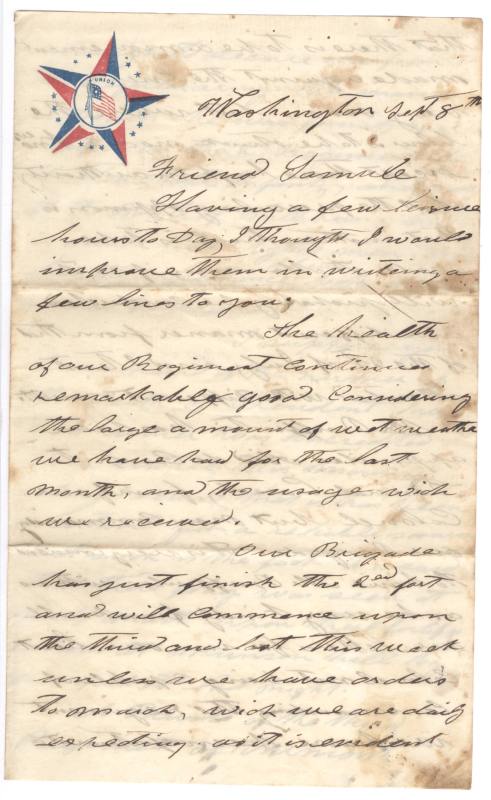 UNION
Washington Sept 8th
Friend Samule
Having a few leisure
hours to Day, I thought I would
improve them in writing a
few lines to you.
The health
of our Regiment continues
remarkably good Considering
the large amount of wet weathe
we have had for the last
month, and the usage wich
we received.
Our Brigade
has just finish the 2ed fort
and will commence upon
the third and last this week
unless we have orders
to march, wich we are daily
expecting, as it is evident